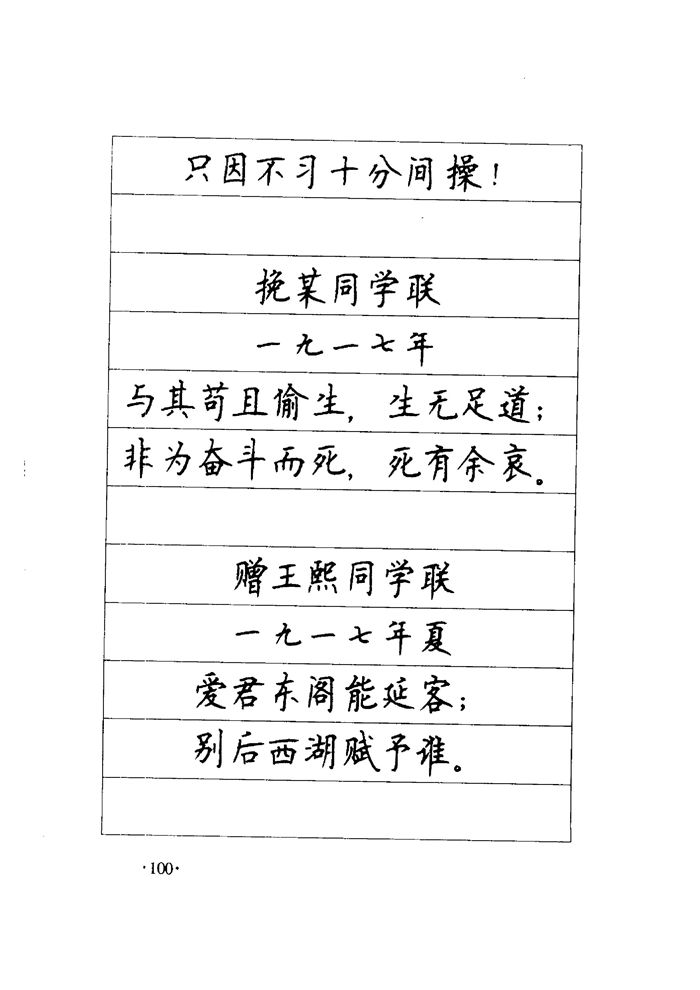 只因不习十分间操！
挽某同学联
一九一七年
与其苟且偷生，生无足道；
非为奋斗而死，死有余哀。
赠王熙同学联
一九一七年夏
爱君东阁能延客；
别后西湖赋予谁。
·100·